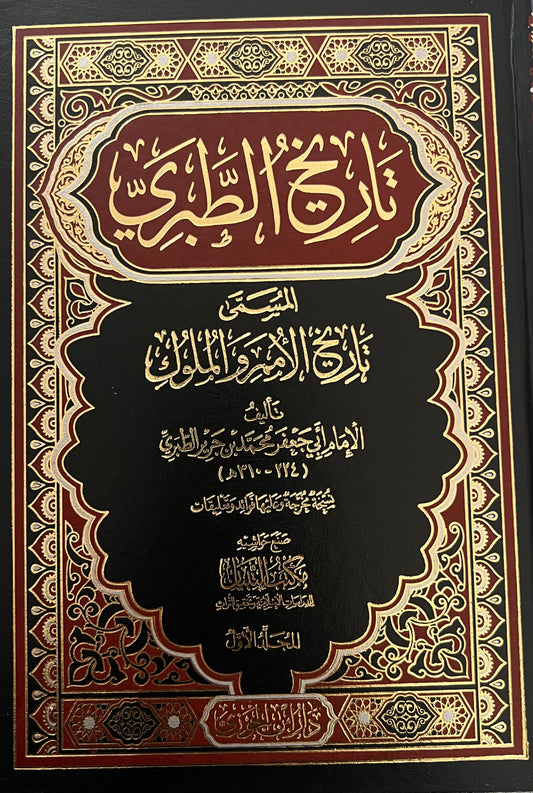 تَارِيخُ الطَّبَرِيِّ
المُسَمَّى
تَارِيخ الأُمَمِ وَالمُلُوك
تَأليفُ
الإِمَام أَبِي جَعْفَر مُحَمَّد بْن جَرِير الطَّبَرِيِّ
(٢٢٤ - ٣١٠ هـ)
نُسْخَةٌ مُخَرَّجَةٌ وَعَلَيْهَا فَوَائِد وَتَعْلِيقَات
صَنَعَ حَوَاشِيه
مَكْتَب التِّبْيَان
للدراسات الإسلامية وتحقيق التراث
المُجَلَّدُ الأَوَّلُ
دَارُ ابْنِ الجَوْزِي